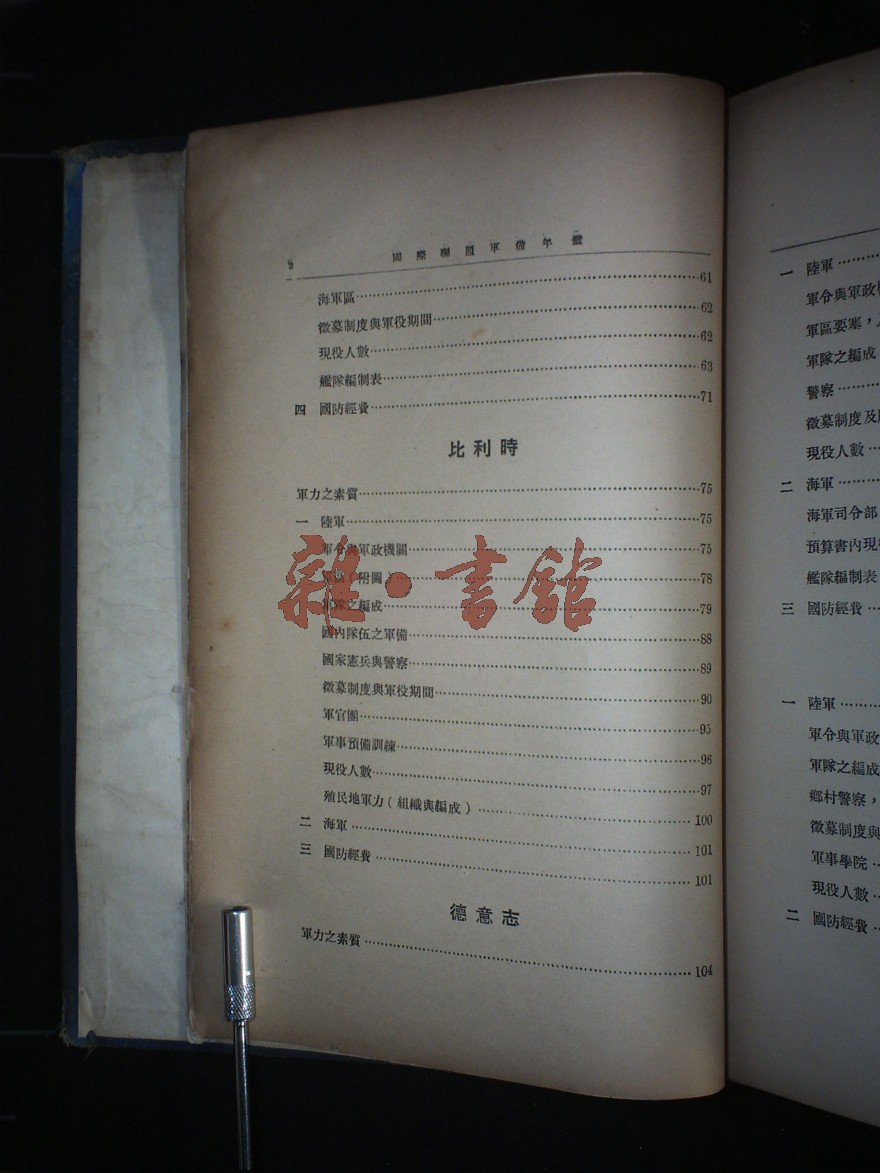 國際聯盟軍備年鑑
海軍區 61
徵募制度與軍役期間 62
現役人數 62
艦隊編制表 63
四 國防經費 71
比利時
軍力之素質 75
一 陸軍 75
軍令與軍政機關 75
(附圖) 78
軍隊之編成 79
國內隊伍之軍備 88
國家憲兵與警察 89
徵募制度與軍役期間 90
軍官團 95
軍事預備訓練 96
現役人數 97
殖民地軍力(組織與編成) 100
二 海軍 101
三 國防經費 101
德意志
軍力之素質 104
雜·書館
一 陸軍
軍令與軍政機
軍區要塞,
軍隊之編成
警察
徵募制度及
現役人數
二 海軍
海軍司令部
預算書內現
艦隊編制表
三 國防經費
一 陸軍
軍令與軍政
軍隊之編成
鄉村警察,
徵募制度與
軍事學院
現役人數
二 國防經費